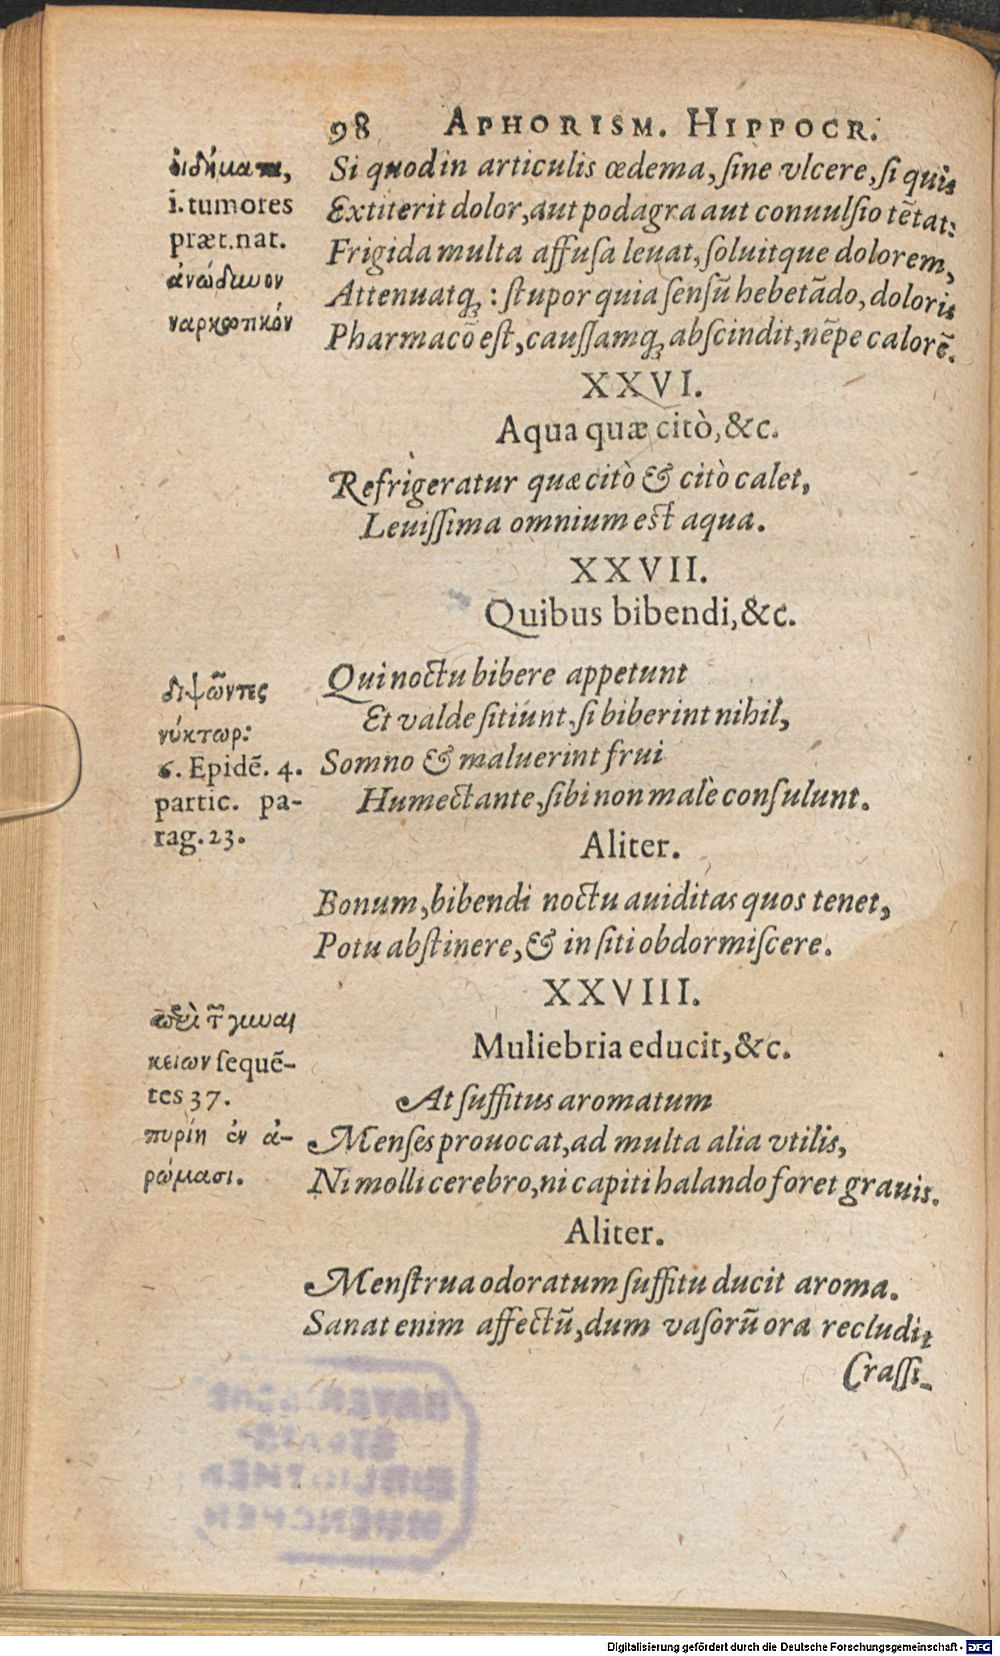 98 APHORISM. HIPPOCR.
οἰδήματα,
i. tumores
præt. nat.
ἀνώδυνον
ναρκωτικόν
Si quod in articulis œdema, ſine vlcere, ſi quis
Extiterit dolor, aut podagra aut conuulſio tẽtat:
Frigida multa affuſa leuat, ſoluitque dolorem,
Attenuatq́; : ſtupor quia ſenſũ hebetãdo, doloris
Pharmacõ eſt, cauſſamq́; abſcindit, nẽpe calorẽ.
XXVI.
Aqua quæ citò, &c.
Refrigeratur quæ citò & citò calet,
Leuiſſima omnium est aqua.
XXVII.
Quibus bibendi, &c.
διψῶντες
νύκτωρ:
6. Epidẽ. 4.
partic. pa-
rag. 23.
Qui noctu bibere appetunt
Et valde ſitiunt, ſi biberint nihil,
Somno & maluerint frui
Humectante, ſibi non malè conſulunt.
Aliter.
Bonum, bibendi noctu auiditas quos tenet,
Potu abſtinere, & in ſiti obdormiſcere.
XXVIII.
Muliebria educit, &c.
περὶ τ̃ γυναι
κείων ſequẽ-
tes 37.
πυρίη ἐν ἀ-
ρώμασι.
At ſuffitus aromatum
Menſes prouocat, ad multa alia vtilis,
Ni molli cerebro, ni capiti halando foret grauis.
Aliter.
Menſtrua odoratum ſuffitu ducit aroma.
Sanat enim affectũ, dum vaſorũ ora recludit
Craſſi-
BAYERISCHE
STAATS-
BIBLIOTHEK
MUENCHEN
Digitalisierung gefördert durch die Deutsche Forschungsgemeinschaft - DFG